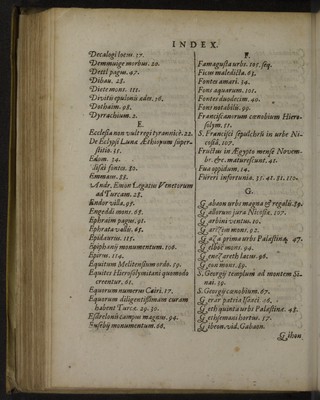 INDEX.
Decalogi locus. 57.
Demmuige morbus. 20.
Dettl pagus. 47.
Dibau. 28.
Diete mons. 111.
Divitis epulonis adm. 56.
Dothaim. 98.
Dyrrachium. 2.
E.
Ecclesia non vult regi tyrannicè. 22.
De Eclypsi Luna Æthiopum super-
stitio. 15.
Edom. 24.
fontes. 50.
Emmaus. 88.
Andr. Emon Legatus Venetorum
ad Turcam. 28.
Endor villa. 95.
Engeddi mons. 68.
Ephraim pagus. 91.
Ephrata vallis. 65.
Epidaurus. 115.
Epiphanij monumentum. 106.
Epirus. 114.
Equitum Melitensium ordo. 59.
Equites Hierosolymitani quomodo
creentur. 61.
Equorum numerus Cairi. 17.
Equorum diligentissimam curam
habent Turcæ. 29. 30.
Esdrelonis campus magnus. 94.
Eusebij monumentum. 66.
F.
Famagusta urbs. 105. seq.
Ficus maledicta. 63.
Fontes amari. 34.
Fons aquarum. 101.
Fontes duodecim. 40.
Fons notabilis. 99.
Franciscanorum cœnobium Hiero-
solym. 51.
S. Francisci sepulchrū in urbe Ni-
cosiâ. 107.
Fructus in Ægypto mense Novem-
br. &c. maturescunt. 41.
Fua oppidum. 14.
Fureri infortunia. 31. 41. 81. 110.
G.
Gabaon urbs magna & regalis. 89.
Gallorum jura Nicosiæ. 107.
Garbini ventus. 10.
Garizim mons. 92.
Gaza prima urbs Palæstinæ. 47.
Gelboë mons. 94.
Genezareth lacus. 96.
Geon mons. 89.
S. Georgij templum ad montem Si-
nai. 39.
S. Georgij cœnobium. 67.
Gerar patria Isaaci. 48.
Geth quinta urbs Palæstinæ. 48.
Gethsemani hortus. 57.
Gibeon. vid. Gabaon.
Gihon